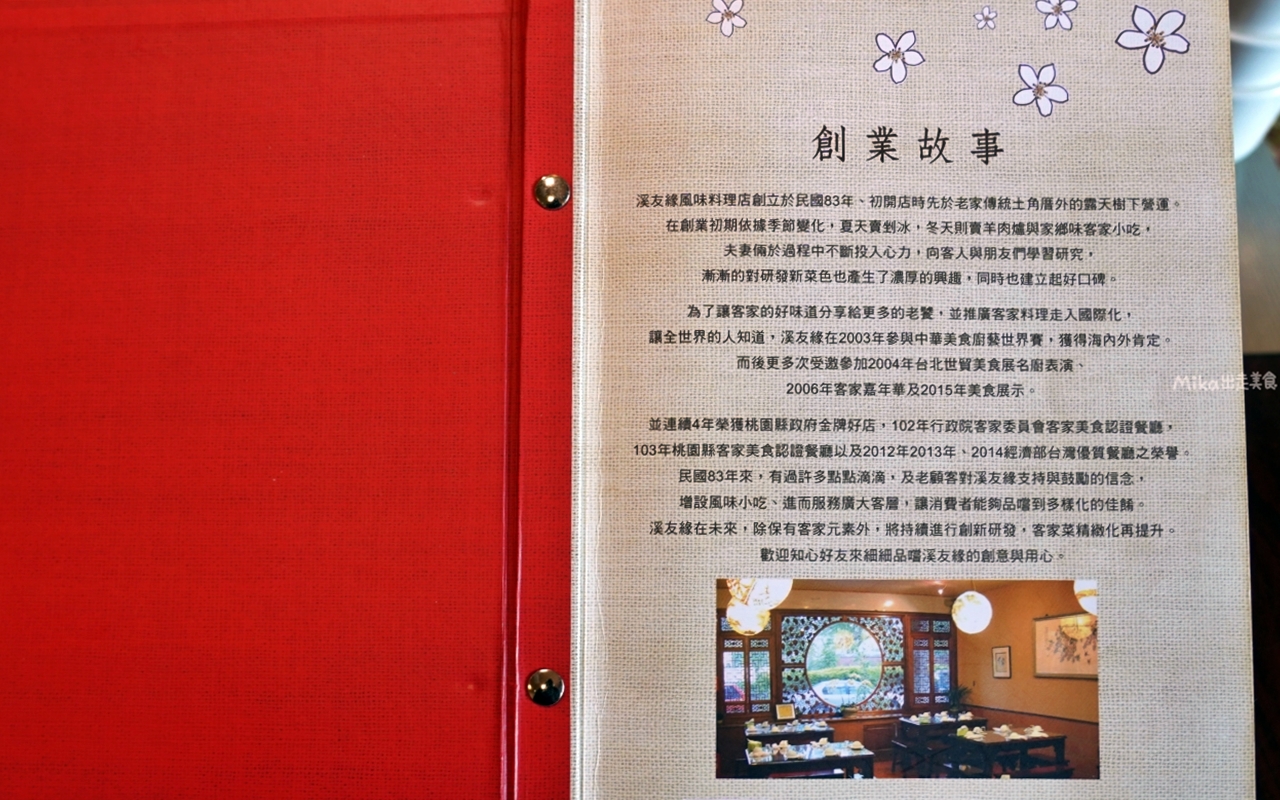 創業故事
溪友緣風味料理店創立於民國83年、初開店時先於老家傳統土角厝外的露天樹下營運。
在創業初期依據季節變化，夏天賣剉冰，冬天則賣羊肉爐與家鄉味客家小吃，
夫妻倆於過程中不斷投入心力，向客人與朋友們學習研究，
漸漸的對研發新菜色也產生了濃厚的興趣，同時也建立起好口碑。
為了讓客家的好味道分享給更多的老饕，並推廣客家料理走入國際化，
讓全世界的人知道，溪友緣在2003年參與中華美食廚藝世界賽，獲得海內外肯定。
而後更多次受邀參加2004年台北世貿美食展名廚表演、
2006年客家嘉年華及2015年美食展示。
並連續4年榮獲桃園縣政府金牌好店，102年行政院客家委員會客家美食認證餐廳，
103年桃園縣客家美食認證餐廳以及2012年2013年、2014經濟部台灣優質餐廳之榮譽。
民國83年來，有過許多點點滴滴，及老顧客對溪友緣支持與鼓勵的信念，
增設風味小吃、進而服務廣大客層，讓消費者能夠品嚐到多樣化的佳餚。
溪友緣在未來，除保有客家元素外，將持續進行創新研發，客家菜精緻化再提升。
歡迎知心好友來細細品嚐溪友緣的創意與用心。
Mika出走美食